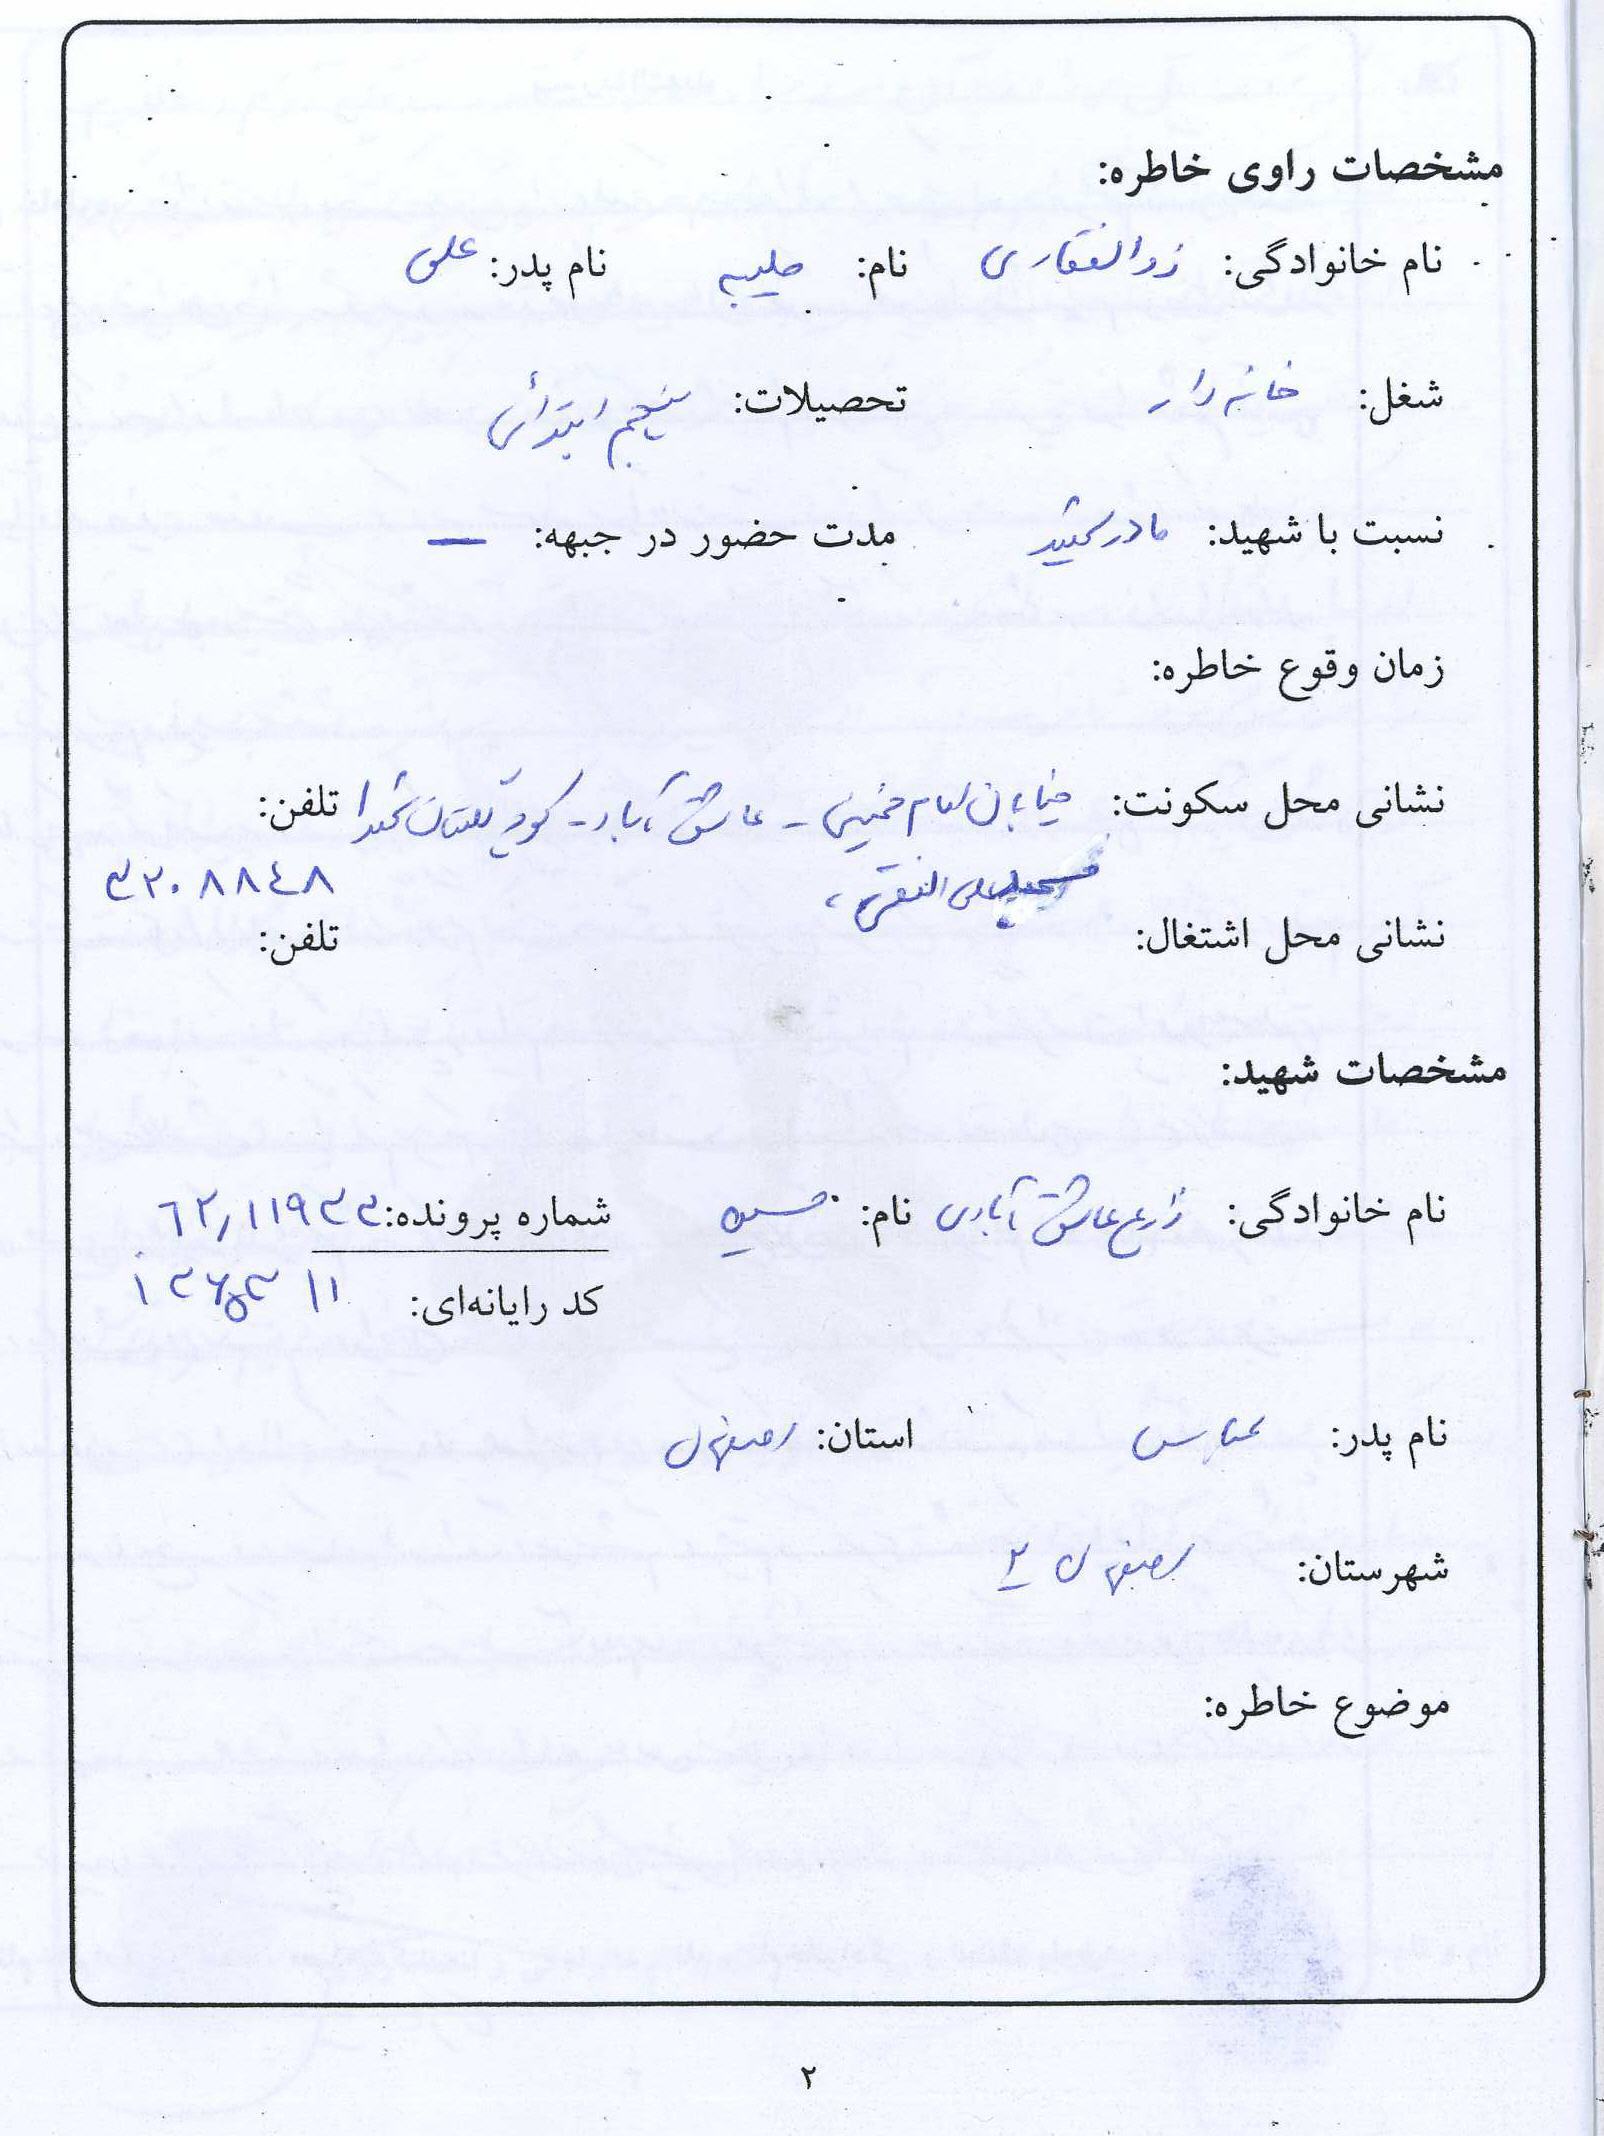 مشخصات راوی خاطره:
نام خانوادگی: ذوالفقاری نام: طیبه نام پدر: علی
شغل: خانه دار تحصیلات: پنجم ابتدائی
نسبت با شهید: مادر شهید مدت حضور در جبهه: —
زمان وقوع خاطره:
نشانی محل سکونت: خیابان امام خمینی - عاشق آباد - کوی گلستان شهدا تلفن:
علی النقی ۳۲۰۸۸۴۸
نشانی محل اشتغال: تلفن:
مشخصات شهید:
نام خانوادگی: زارع عاشق آبادی نام: حسین شماره پرونده: ۶۲٫۱۱۹۳۳
کد رایانه‌ای:
نام پدر: عباس استان: اصفهان
شهرستان: اصفهان ۲
موضوع خاطره:
۲